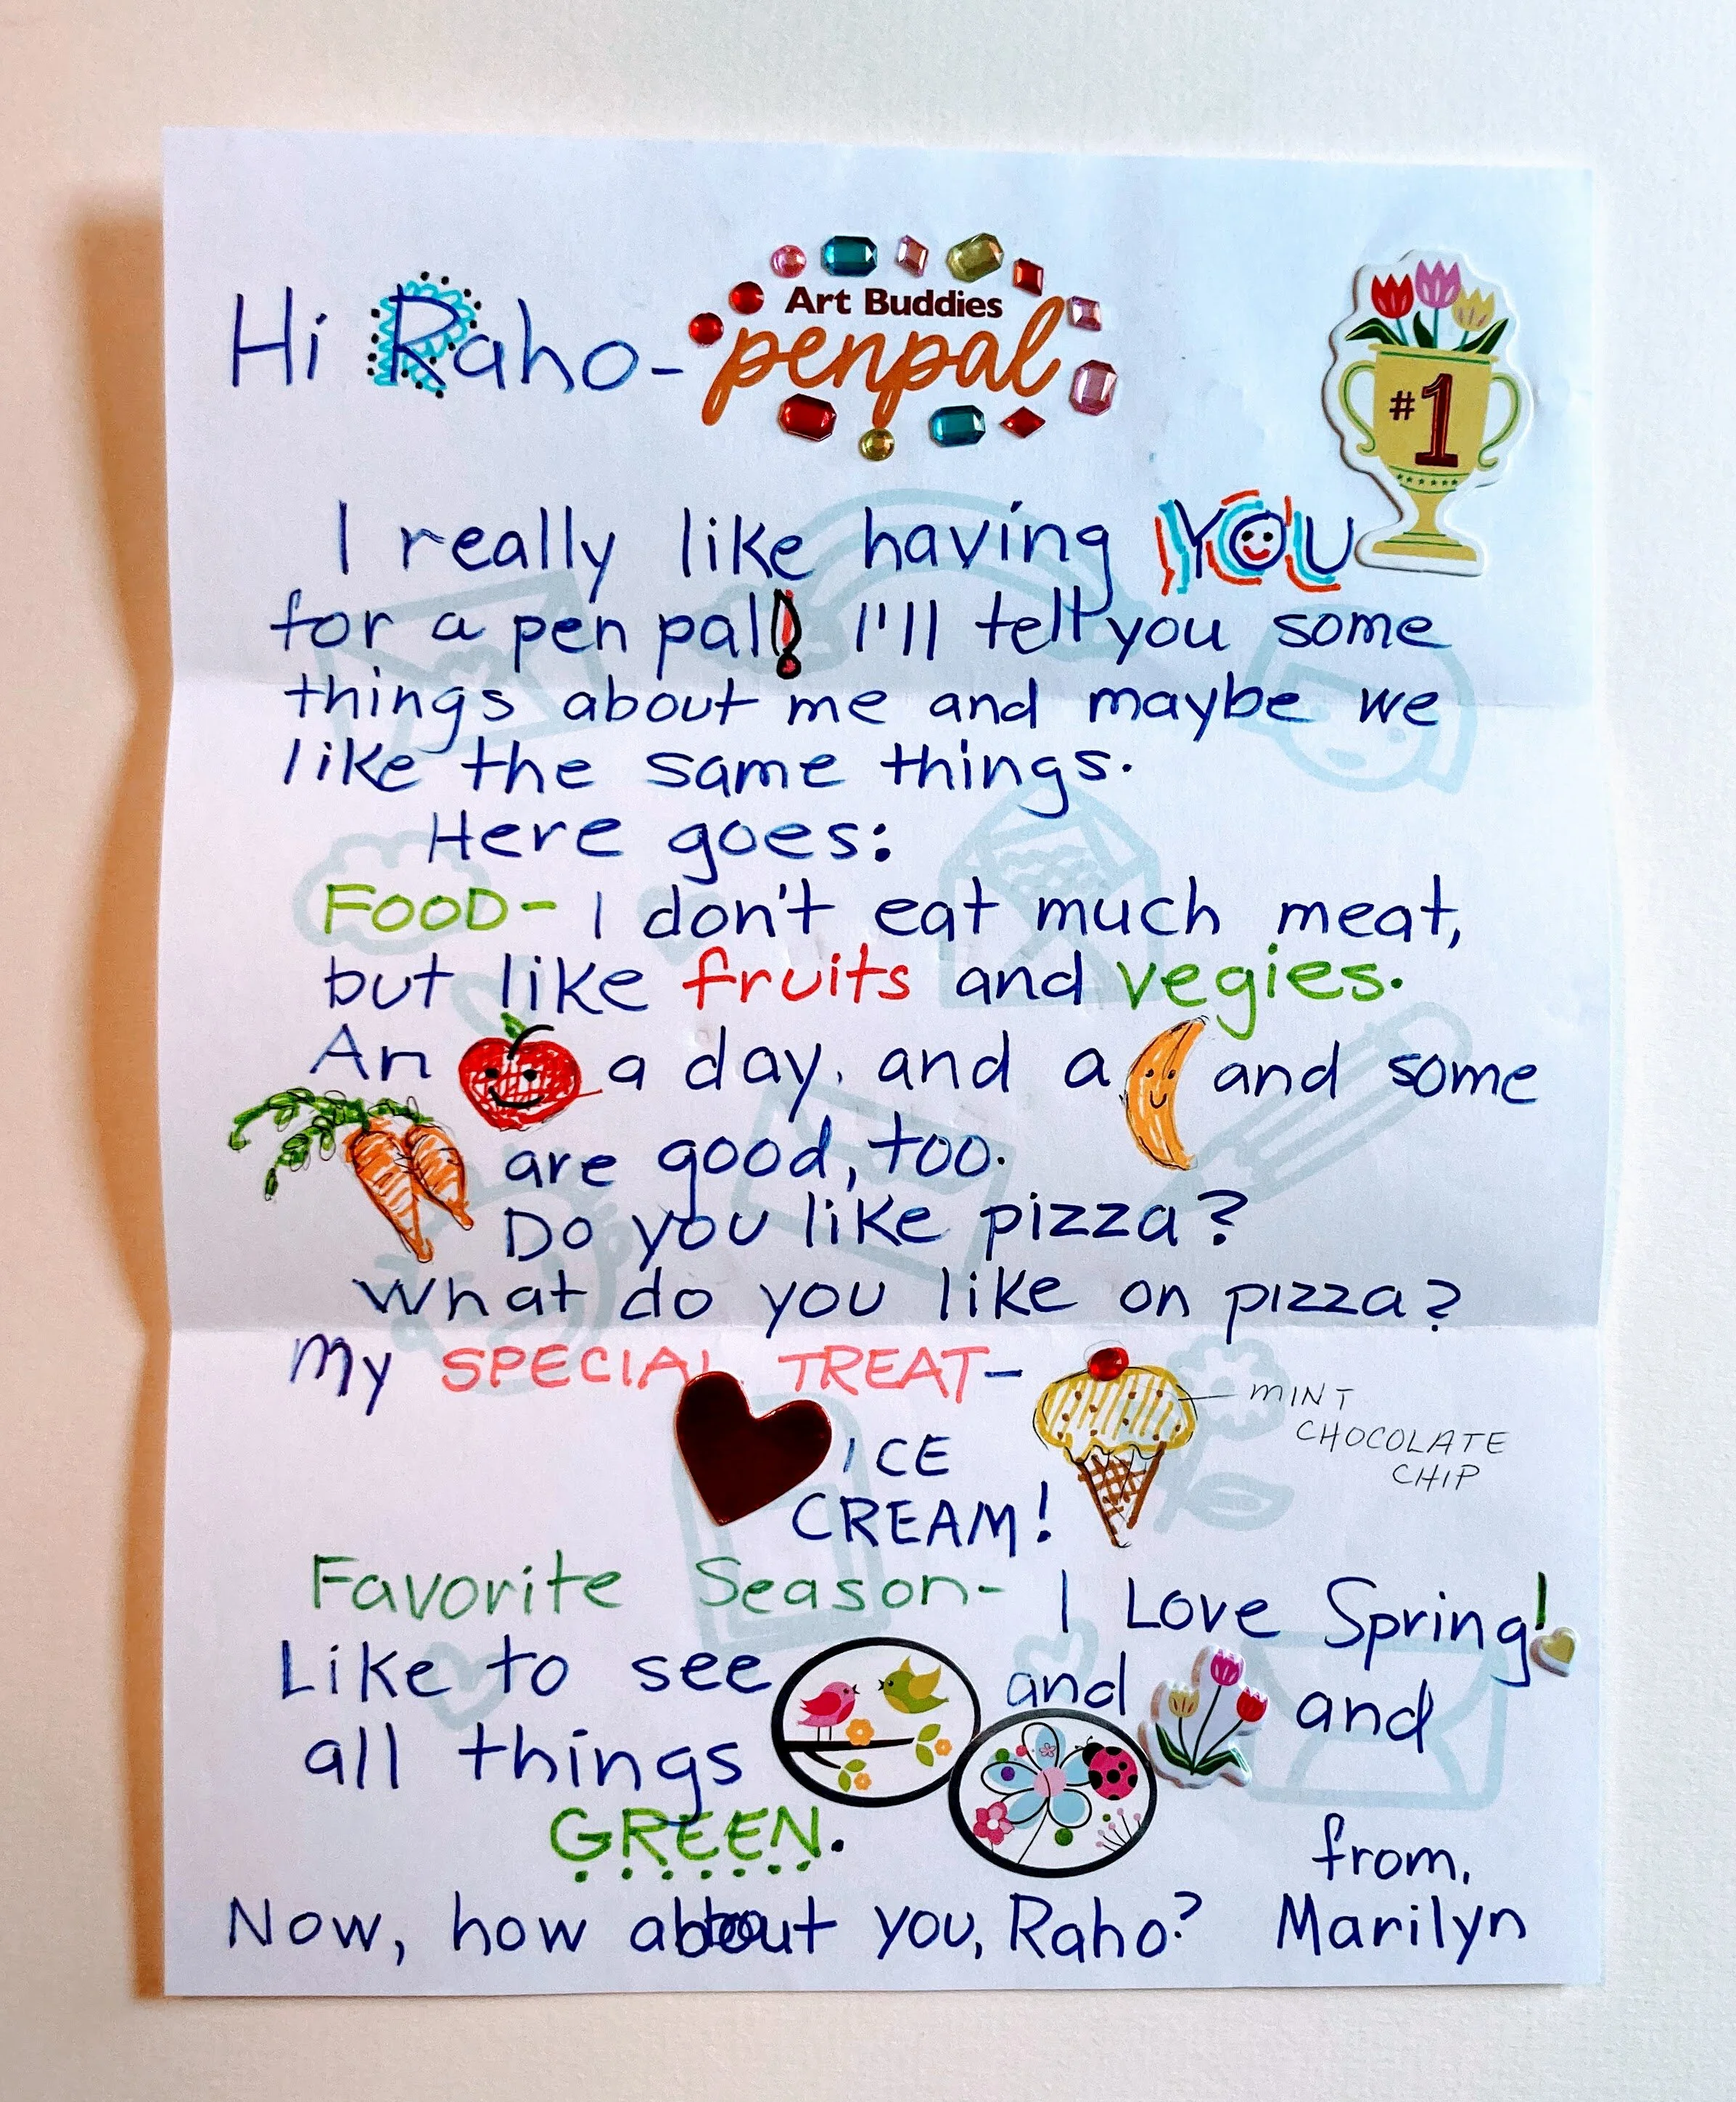 Hi Raho-
Art Buddies
penpal
#1
I really like having YOU
for a pen pal! I'll tell you some
things about me and maybe we
like the same things.
Here goes:
FOOD- I don't eat much meat,
but like fruits and vegies.
An a day, and a and some
are good, too.
Do you like pizza?
What do you like on pizza?
My SPECIAL TREAT-
MINT
CHOCOLATE
CHIP
ICE
CREAM!
Favorite Season- I Love Spring!
Like to see and and
all things
GREEN.
from,
Now, how about you, Raho? Marilyn